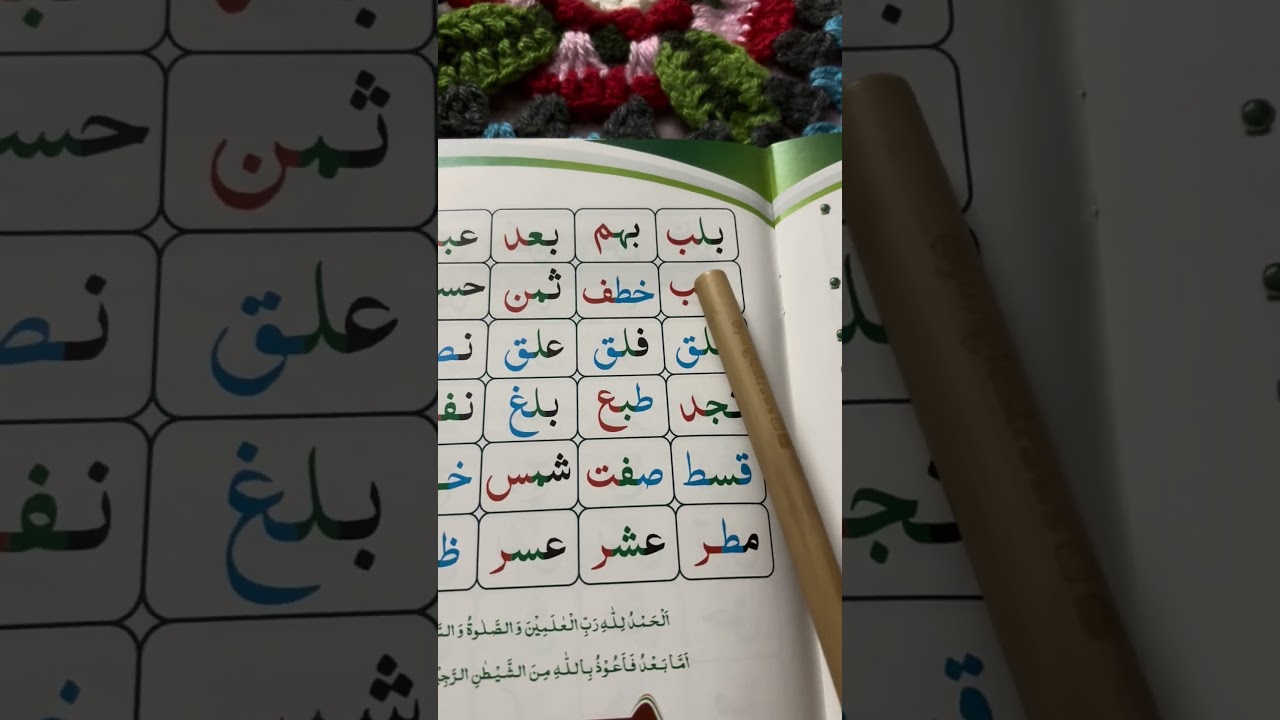 بلب بهم بعد
خطف ثمن
فلق علق
نجد طبع بلغ
قسط صفت شمس
مطر عشر عسر
اَلْحَمْدُ لِلّٰهِ رَبِّ الْعٰلَمِيْنَ وَالصَّلٰوةُ
اَمَّا بَعْدُ فَاَعُوْذُ بِاللّٰهِ مِنَ الشَّيْطٰنِ